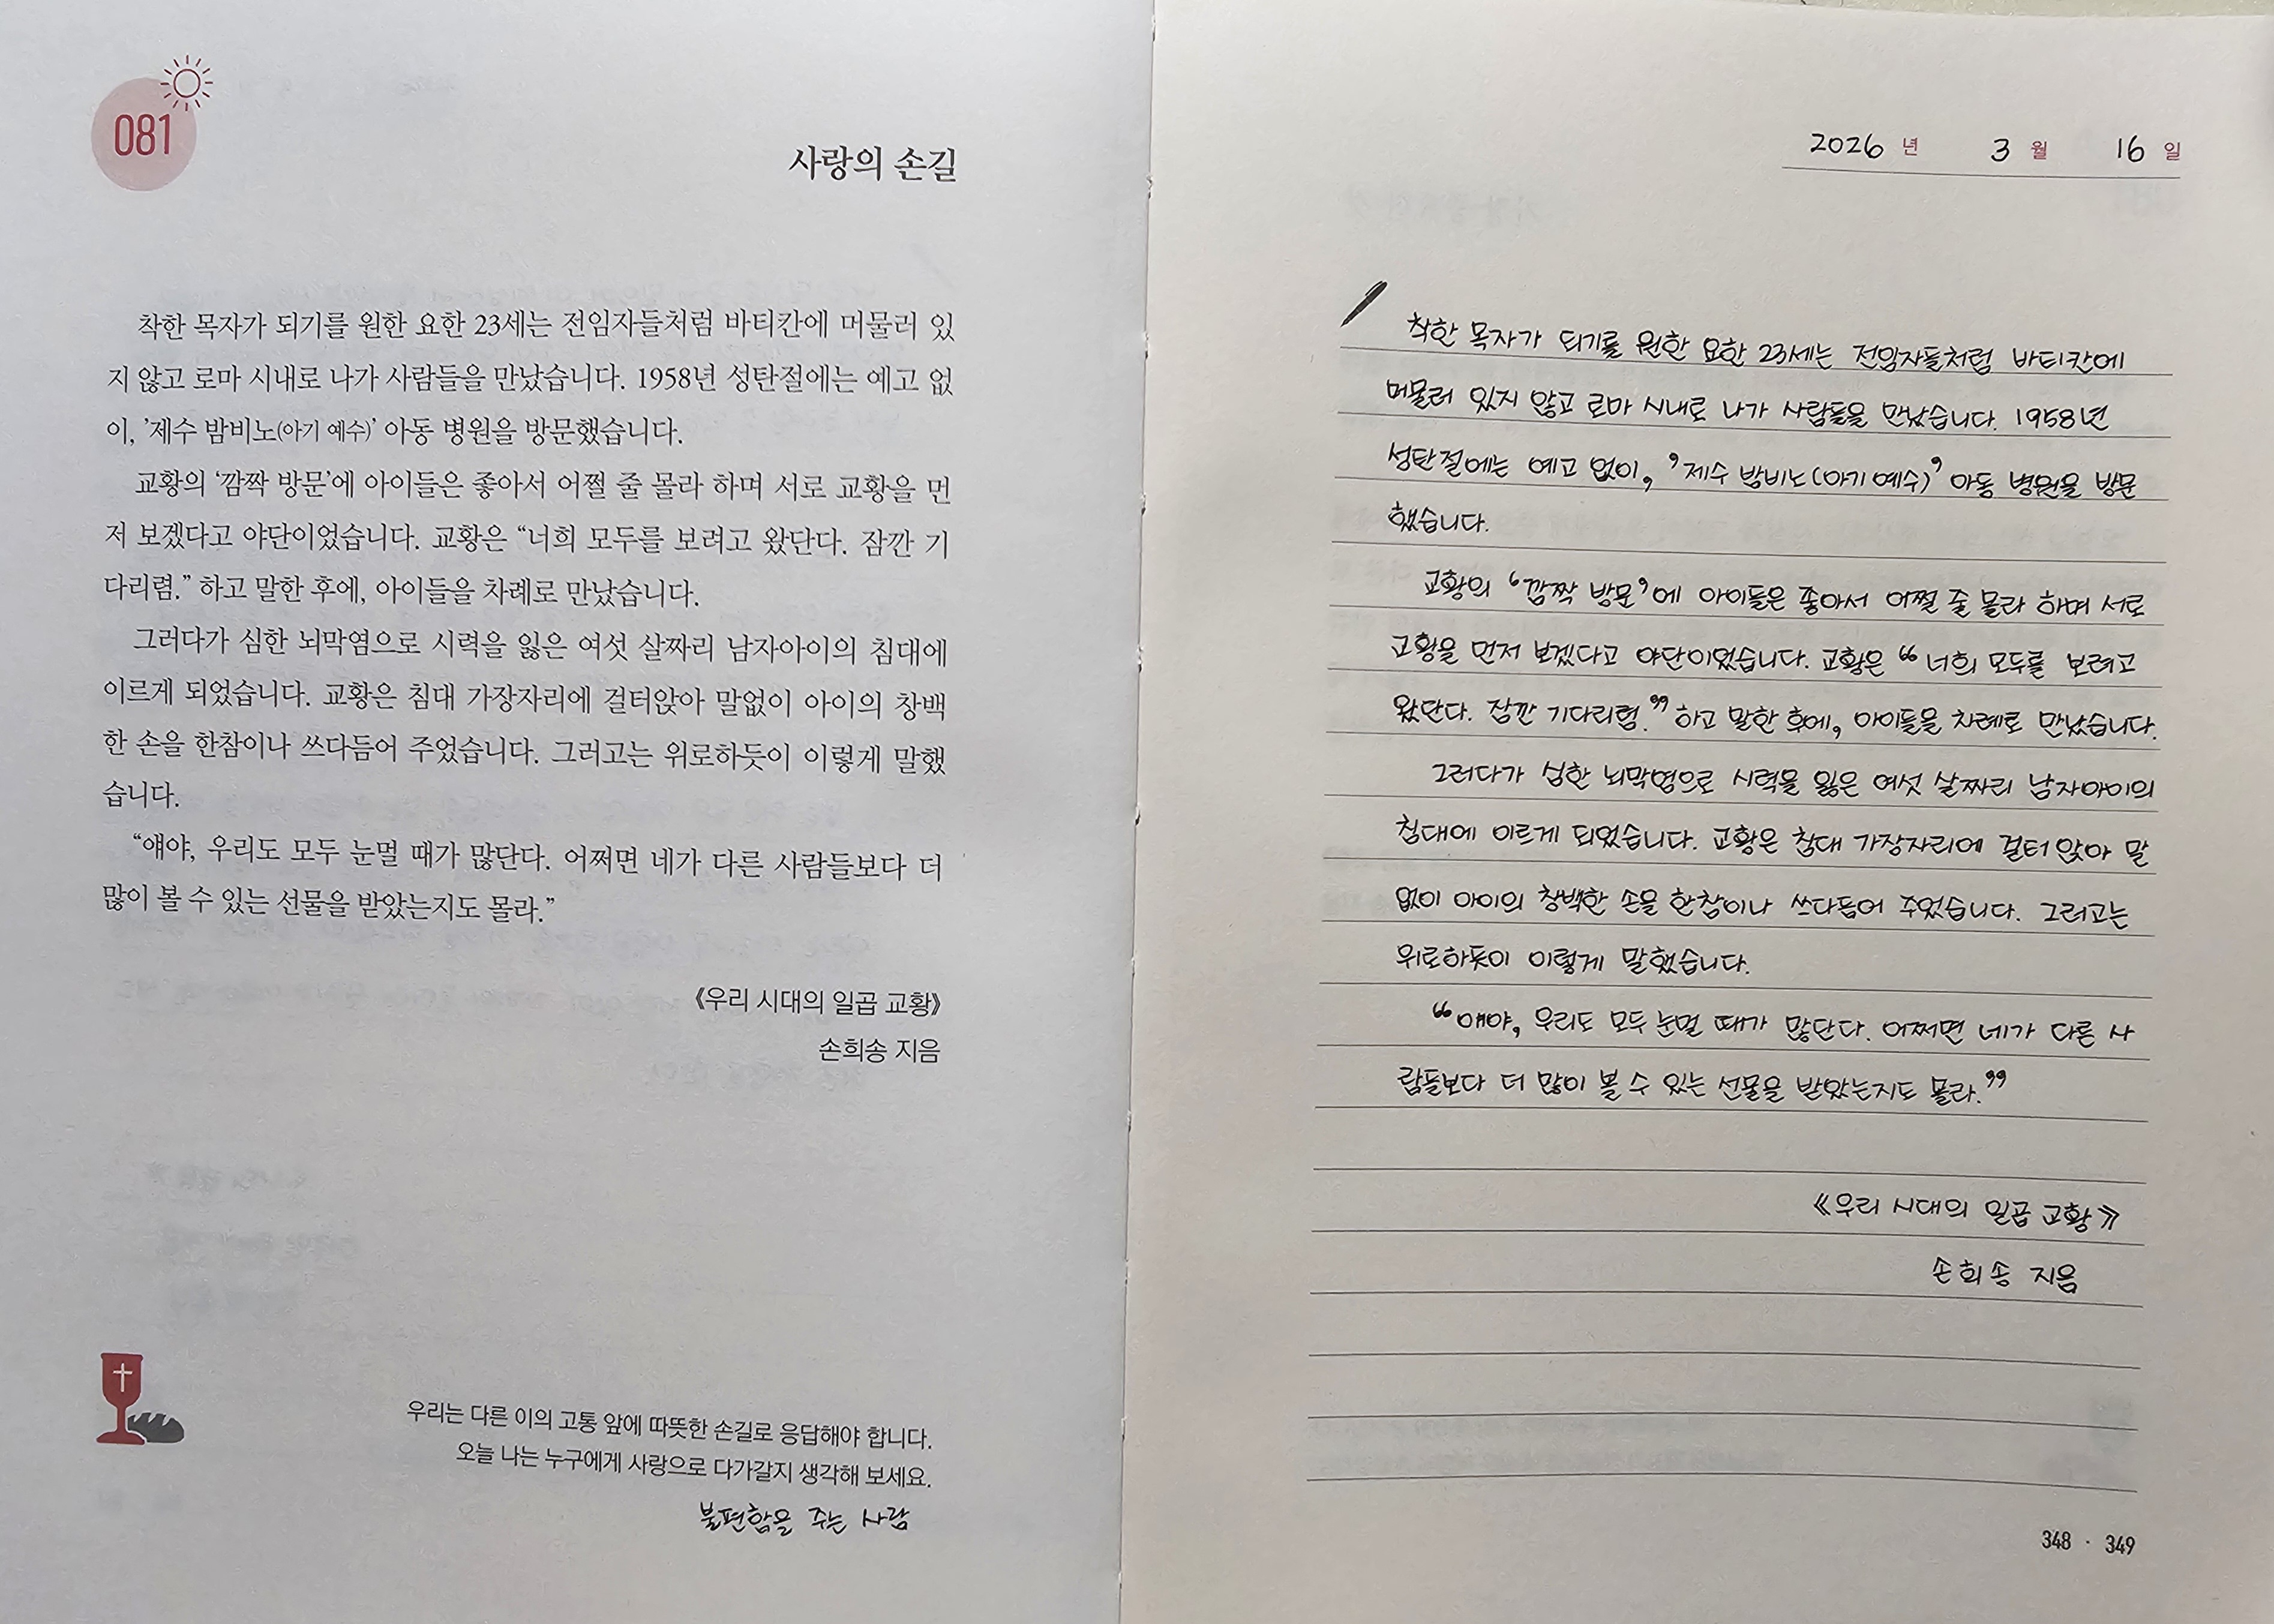 081
사랑의 손길
착한 목자가 되기를 원한 요한 23세는 전임자들처럼 바티칸에 머물러 있
지 않고 로마 시내로 나가 사람들을 만났습니다. 1958년 성탄절에는 예고 없
이, ’제수 밤비노(아기 예수)’ 아동 병원을 방문했습니다.
교황의 ‘깜짝 방문’에 아이들은 좋아서 어쩔 줄 몰라 하며 서로 교황을 먼
저 보겠다고 야단이었습니다. 교황은 “너희 모두를 보려고 왔단다. 잠깐 기
다리렴.” 하고 말한 후에, 아이들을 차례로 만났습니다.
그러다가 심한 뇌막염으로 시력을 잃은 여섯 살짜리 남자아이의 침대에
이르게 되었습니다. 교황은 침대 가장자리에 걸터앉아 말없이 아이의 창백
한 손을 한참이나 쓰다듬어 주었습니다. 그러고는 위로하듯이 이렇게 말했
습니다.
“얘야, 우리도 모두 눈멀 때가 많단다. 어쩌면 네가 다른 사람들보다 더
많이 볼 수 있는 선물을 받았는지도 몰라.”
《우리 시대의 일곱 교황》
손희송 지음
우리는 다른 이의 고통 앞에 따뜻한 손길로 응답해야 합니다.
오늘 나는 누구에게 사랑으로 다가갈지 생각해 보세요.
불편함을 주는 사람
2026 년 3 월 16 일
착한 목자가 되기를 원한 요한 23세는 전임자들처럼 바티칸에
머물러 있지 않고 로마 시내로 나가 사람들을 만났습니다. 1958년
성탄절에는 예고 없이, ’제수 밤비노(아기 예수)’ 아동 병원을 방문
했습니다.
교황의 ‘깜짝 방문’에 아이들은 좋아서 어쩔 줄 몰라 하며 서로
교황을 먼저 보겠다고 야단이었습니다. 교황은 “너희 모두를 보려고
왔단다. 잠깐 기다리렴.” 하고 말한 후에, 아이들을 차례로 만났습니다.
그러다가 심한 뇌막염으로 시력을 잃은 여섯 살짜리 남자아이의
침대에 이르게 되었습니다. 교황은 침대 가장자리에 걸터앉아 말
없이 아이의 창백한 손을 한참이나 쓰다듬어 주었습니다. 그러고는
위로하듯이 이렇게 말했습니다.
“얘야, 우리도 모두 눈멀 때가 많단다. 어쩌면 네가 다른 사
람들보다 더 많이 볼 수 있는 선물을 받았는지도 몰라.”
《우리 시대의 일곱 교황》
손희송 지음
348 · 349